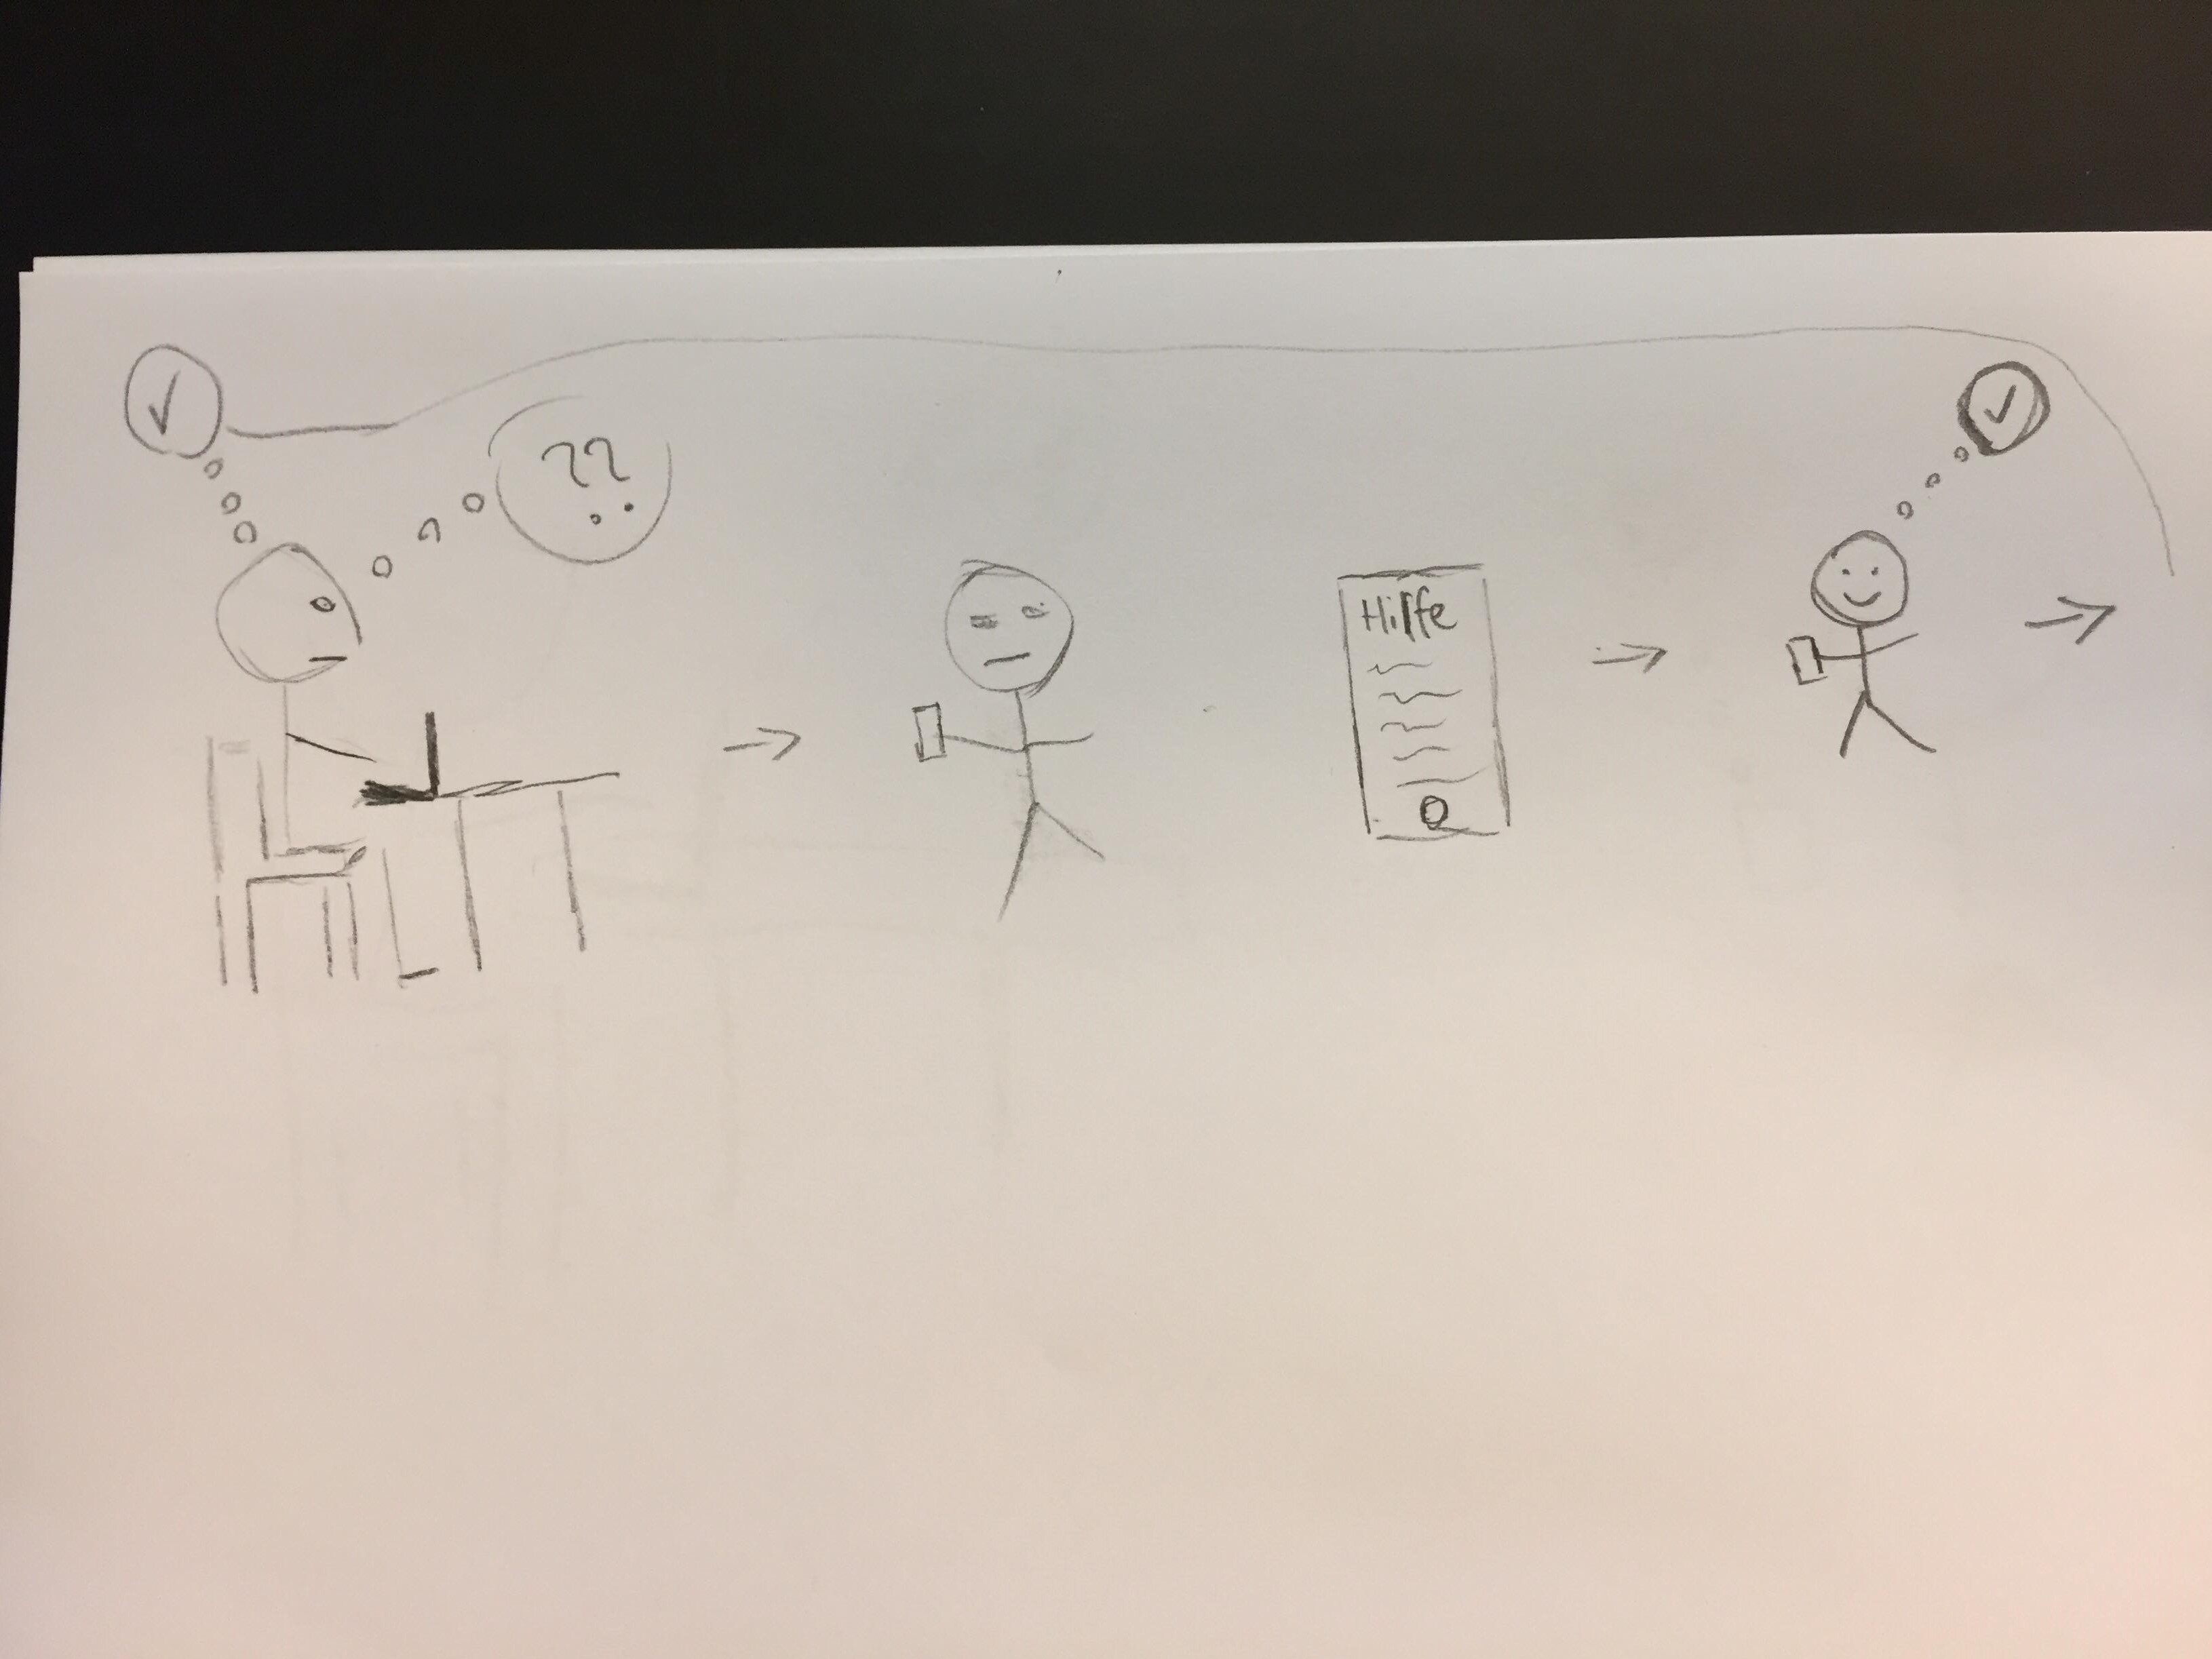 ??
Hilfe